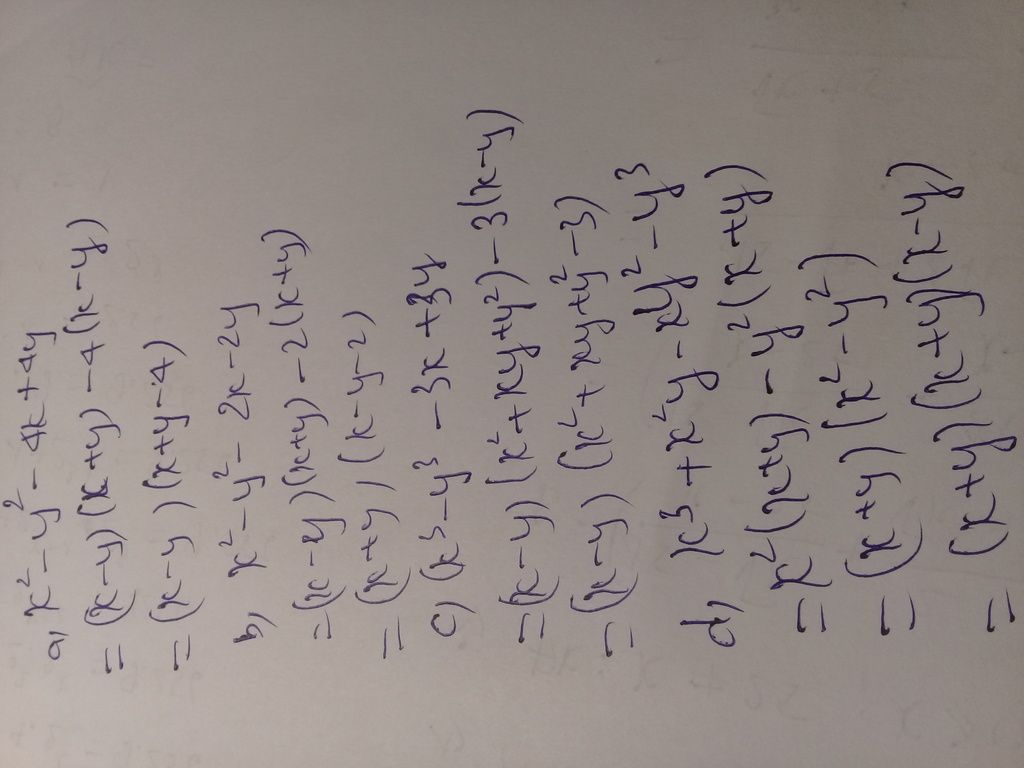 a) x² - y² - 4x + 4y
= (x-y)(x+y) - 4(x-y)
= (x-y)(x+y-4)
b) x² - y² - 2x - 2y
= (x-y)(x+y) - 2(x+y)
= (x+y)(x-y-2)
c) (x³ - y³ - 3x + 3y
= (x-y)(x²+xy+y²) - 3(x-y)
= (x-y)(x²+xy+y²-3)
d) x³ + x²y - xy² - y³
= x²(x+y) - y²(x+y)
= (x+y)(x²-y²)
= (x+y)(x+y)(x-y)